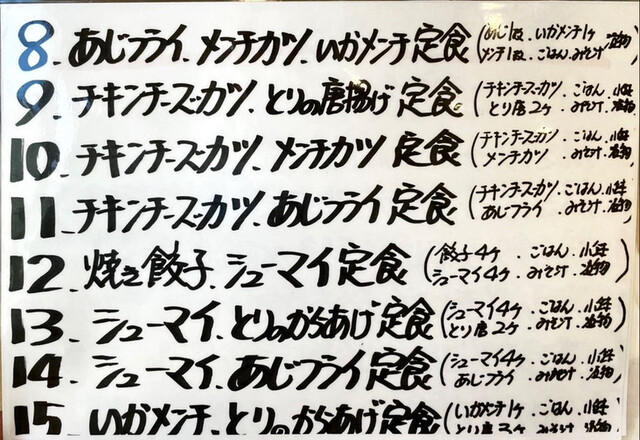 8. あじフライ、メンチカツ、いかメンチ定食 (あじ1枚、いかメンチ1ヶ
メンチ1枚、ごはん、みそ汁、漬物)
9. チキンチーズカツ、とりの唐揚げ定食 (チキンチーズカツ、ごはん、小鉢
とり唐2ヶ、みそ汁、漬物)
10. チキンチーズカツ、メンチカツ定食 (チキンチーズカツ、ごはん、小鉢
メンチカツ、みそ汁、漬物)
11. チキンチーズカツ、あじフライ定食 (チキンチーズカツ、ごはん、小鉢
あじフライ、みそ汁、漬物)
12. 焼き餃子、シューマイ定食 (餃子4ヶ、ごはん、小鉢
シューマイ4ヶ、みそ汁、漬物)
13. シューマイ、とりのからあげ定食 (シューマイ4ヶ、ごはん、小鉢
とり唐2ヶ、みそ汁、漬物)
14. シューマイ、あじフライ定食 (シューマイ4ヶ、ごはん、小鉢
あじフライ、みそ汁、漬物)
15. いかメンチ、とりのからあげ定食 (いかメンチ1ヶ、ごはん、小鉢
とり唐2ヶ、みそ汁、漬物)